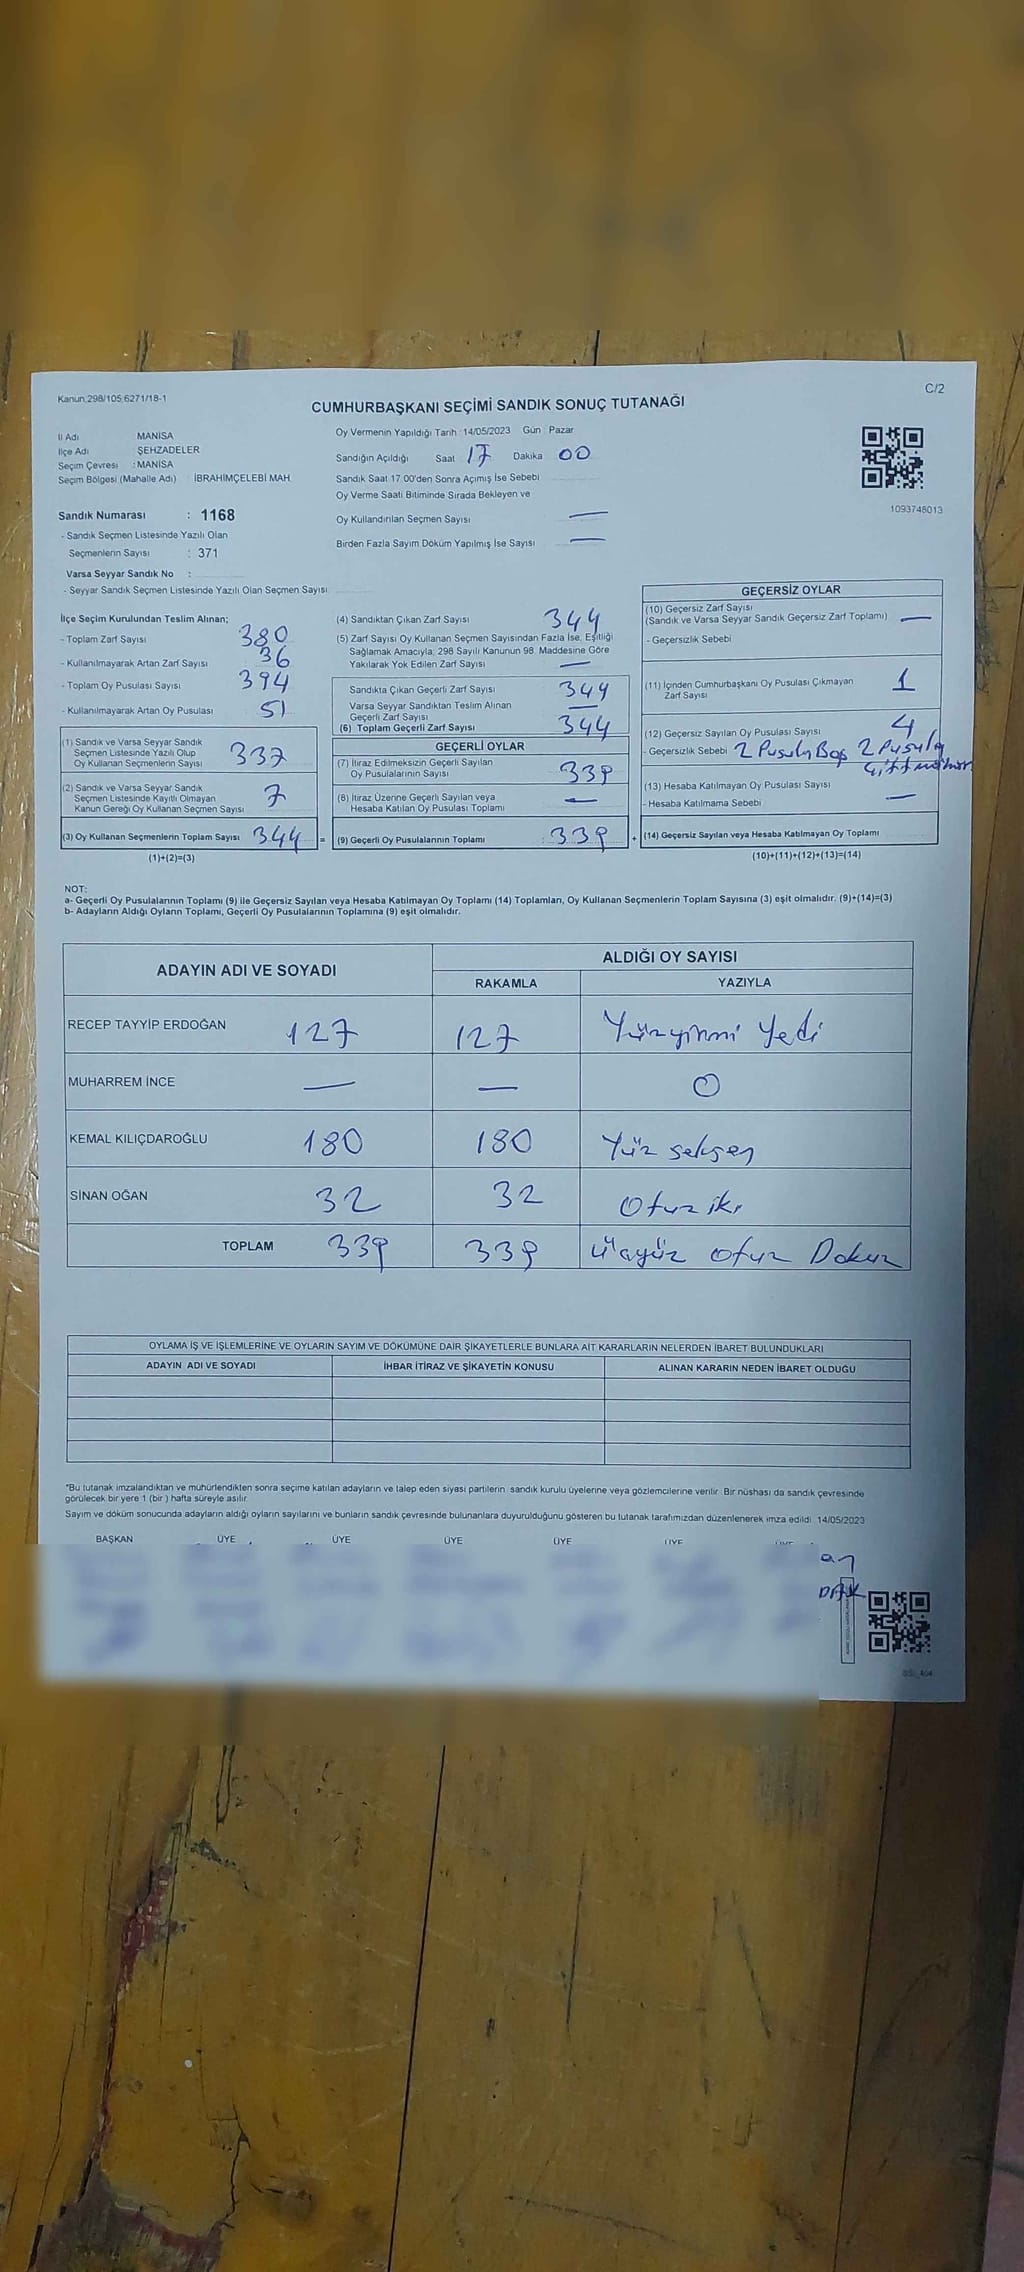 Kanun;298/105;6271/18-1
C/2
CUMHURBAŞKANI SEÇİMİ SANDIK SONUÇ TUTANAĞI
İl Adı MANİSA
İlçe Adı ŞEHZADELER
Seçim Çevresi : MANİSA
Seçim Bölgesi (Mahalle Adı) : İBRAHİMÇELEBİ MAH.
Oy Vermenin Yapıldığı Tarih :14/05/2023 Gün Pazar
Sandığın Açıldığı Saat 17 Dakika 00
Sandık Saat 17:00'den Sonra Açımış İse Sebebi
Oy Verme Saati Bitiminde Sırada Bekleyen ve
Oy Kullandırılan Seçmen Sayısı —
Birden Fazla Sayım Döküm Yapılmış İse Sayısı —
1093748013
Sandık Numarası : 1168
- Sandık Seçmen Listesinde Yazılı Olan
Seçmenlerin Sayısı : 371
Varsa Seyyar Sandık No :
- Seyyar Sandık Seçmen Listesinde Yazılı Olan Seçmen Sayısı
İlçe Seçim Kurulundan Teslim Alınan;
- Toplam Zarf Sayısı 380
- Kullanılmayarak Artan Zarf Sayısı 36
- Toplam Oy Pusulası Sayısı 394
- Kullanılmayarak Artan Oy Pusulası 51
(1) Sandık ve Varsa Seyyar Sandık
Seçmen Listesinde Yazılı Olup
Oy Kullanan Seçmenlerin Sayısı 337
(2) Sandık ve Varsa Seyyar Sandık
Seçmen Listesinde Kayıtlı Olmayan
Kanun Gereği Oy Kullanan Seçmen Sayısı 7
(3) Oy Kullanan Seçmenlerin Toplam Sayısı 344 =
(1)+(2)=(3)
(4) Sandıktan Çıkan Zarf Sayısı 344
(5) Zarf Sayısı Oy Kullanan Seçmen Sayısından Fazla İse, Eşitliği
Sağlamak Amacıyla; 298 Sayılı Kanunun 98. Maddesine Göre
Yakılarak Yok Edilen Zarf Sayısı —
Sandıkta Çıkan Geçerli Zarf Sayısı 344
Varsa Seyyar Sandıktan Teslim Alınan
Geçerli Zarf Sayısı —
(6) Toplam Geçerli Zarf Sayısı 344
GEÇERLİ OYLAR
(7) İtiraz Edilmeksizin Geçerli Sayılan
Oy Pusulalarının Sayısı 339
(8) İtiraz Üzerine Geçerli Sayılan veya
Hesaba Katılan Oy Pusulası Toplamı —
(9) Geçerli Oy Pusulalarının Toplamı : 339 +
GEÇERSİZ OYLAR
(10) Geçersiz Zarf Sayısı
(Sandık ve Varsa Seyyar Sandık Geçersiz Zarf Toplamı) —
- Geçersizlik Sebebi
(11) İçinden Cumhurbaşkanı Oy Pusulası Çıkmayan
Zarf Sayısı 1
(12) Geçersiz Sayılan Oy Pusulası Sayısı 4
- Geçersizlik Sebebi 2 Pusula Boş 2 Pusula
(13) Hesaba Katılmayan Oy Pusulası Sayısı —
- Hesaba Katılmama Sebebi
(14) Geçersiz Sayılan veya Hesaba Katılmayan Oy Toplamı
(10)+(11)+(12)+(13)=(14)
NOT:
a- Geçerli Oy Pusulalarının Toplamı (9) ile Geçersiz Sayılan veya Hesaba Katılmayan Oy Toplamı (14) Toplamları, Oy Kullanan Seçmenlerin Toplam Sayısına (3) eşit olmalıdır. (9)+(14)=(3)
b- Adayların Aldığı Oyların Toplamı, Geçerli Oy Pusulalarının Toplamına (9) eşit olmalıdır.
ADAYIN ADI VE SOYADI
ALDIĞI OY SAYISI
RAKAMLA YAZIYLA
RECEP TAYYİP ERDOĞAN 127 127 Yüzyirmi Yedi
MUHARREM İNCE — — 0
KEMAL KILIÇDAROĞLU 180 180 Yüz seksen
SİNAN OĞAN 32 32 Otuz iki
TOPLAM 339 339 üçyüz otuz Dokuz
OYLAMA İŞ VE İŞLEMLERİNE VE OYLARIN SAYIM VE DÖKÜMÜNE DAİR ŞİKAYETLERLE BUNLARA AİT KARARLARIN NELERDEN İBARET BULUNDUKLARI
ADAYIN ADI VE SOYADI İHBAR İTİRAZ VE ŞİKAYETİN KONUSU ALINAN KARARIN NEDEN İBARET OLDUĞU
"Bu tutanak imzalandıktan ve mühürlendikten sonra seçime katılan adayların ve talep eden siyasi partilerin, sandık kurulu üyelerine veya gözlemcilerine verilir. Bir nüshası da sandık çevresinde
görülecek bir yere 1 (bir) hafta süreyle asılır.
Sayım ve döküm sonucunda adayların aldığı oyların sayılarını ve bunların sandık çevresinde bulunanlara duyurulduğunu gösteren bu tutanak tarafımızdan düzenlenerek imza edildi. 14/05/2023
BAŞKAN ÜYE ÜYE ÜYE ÜYE ÜYE